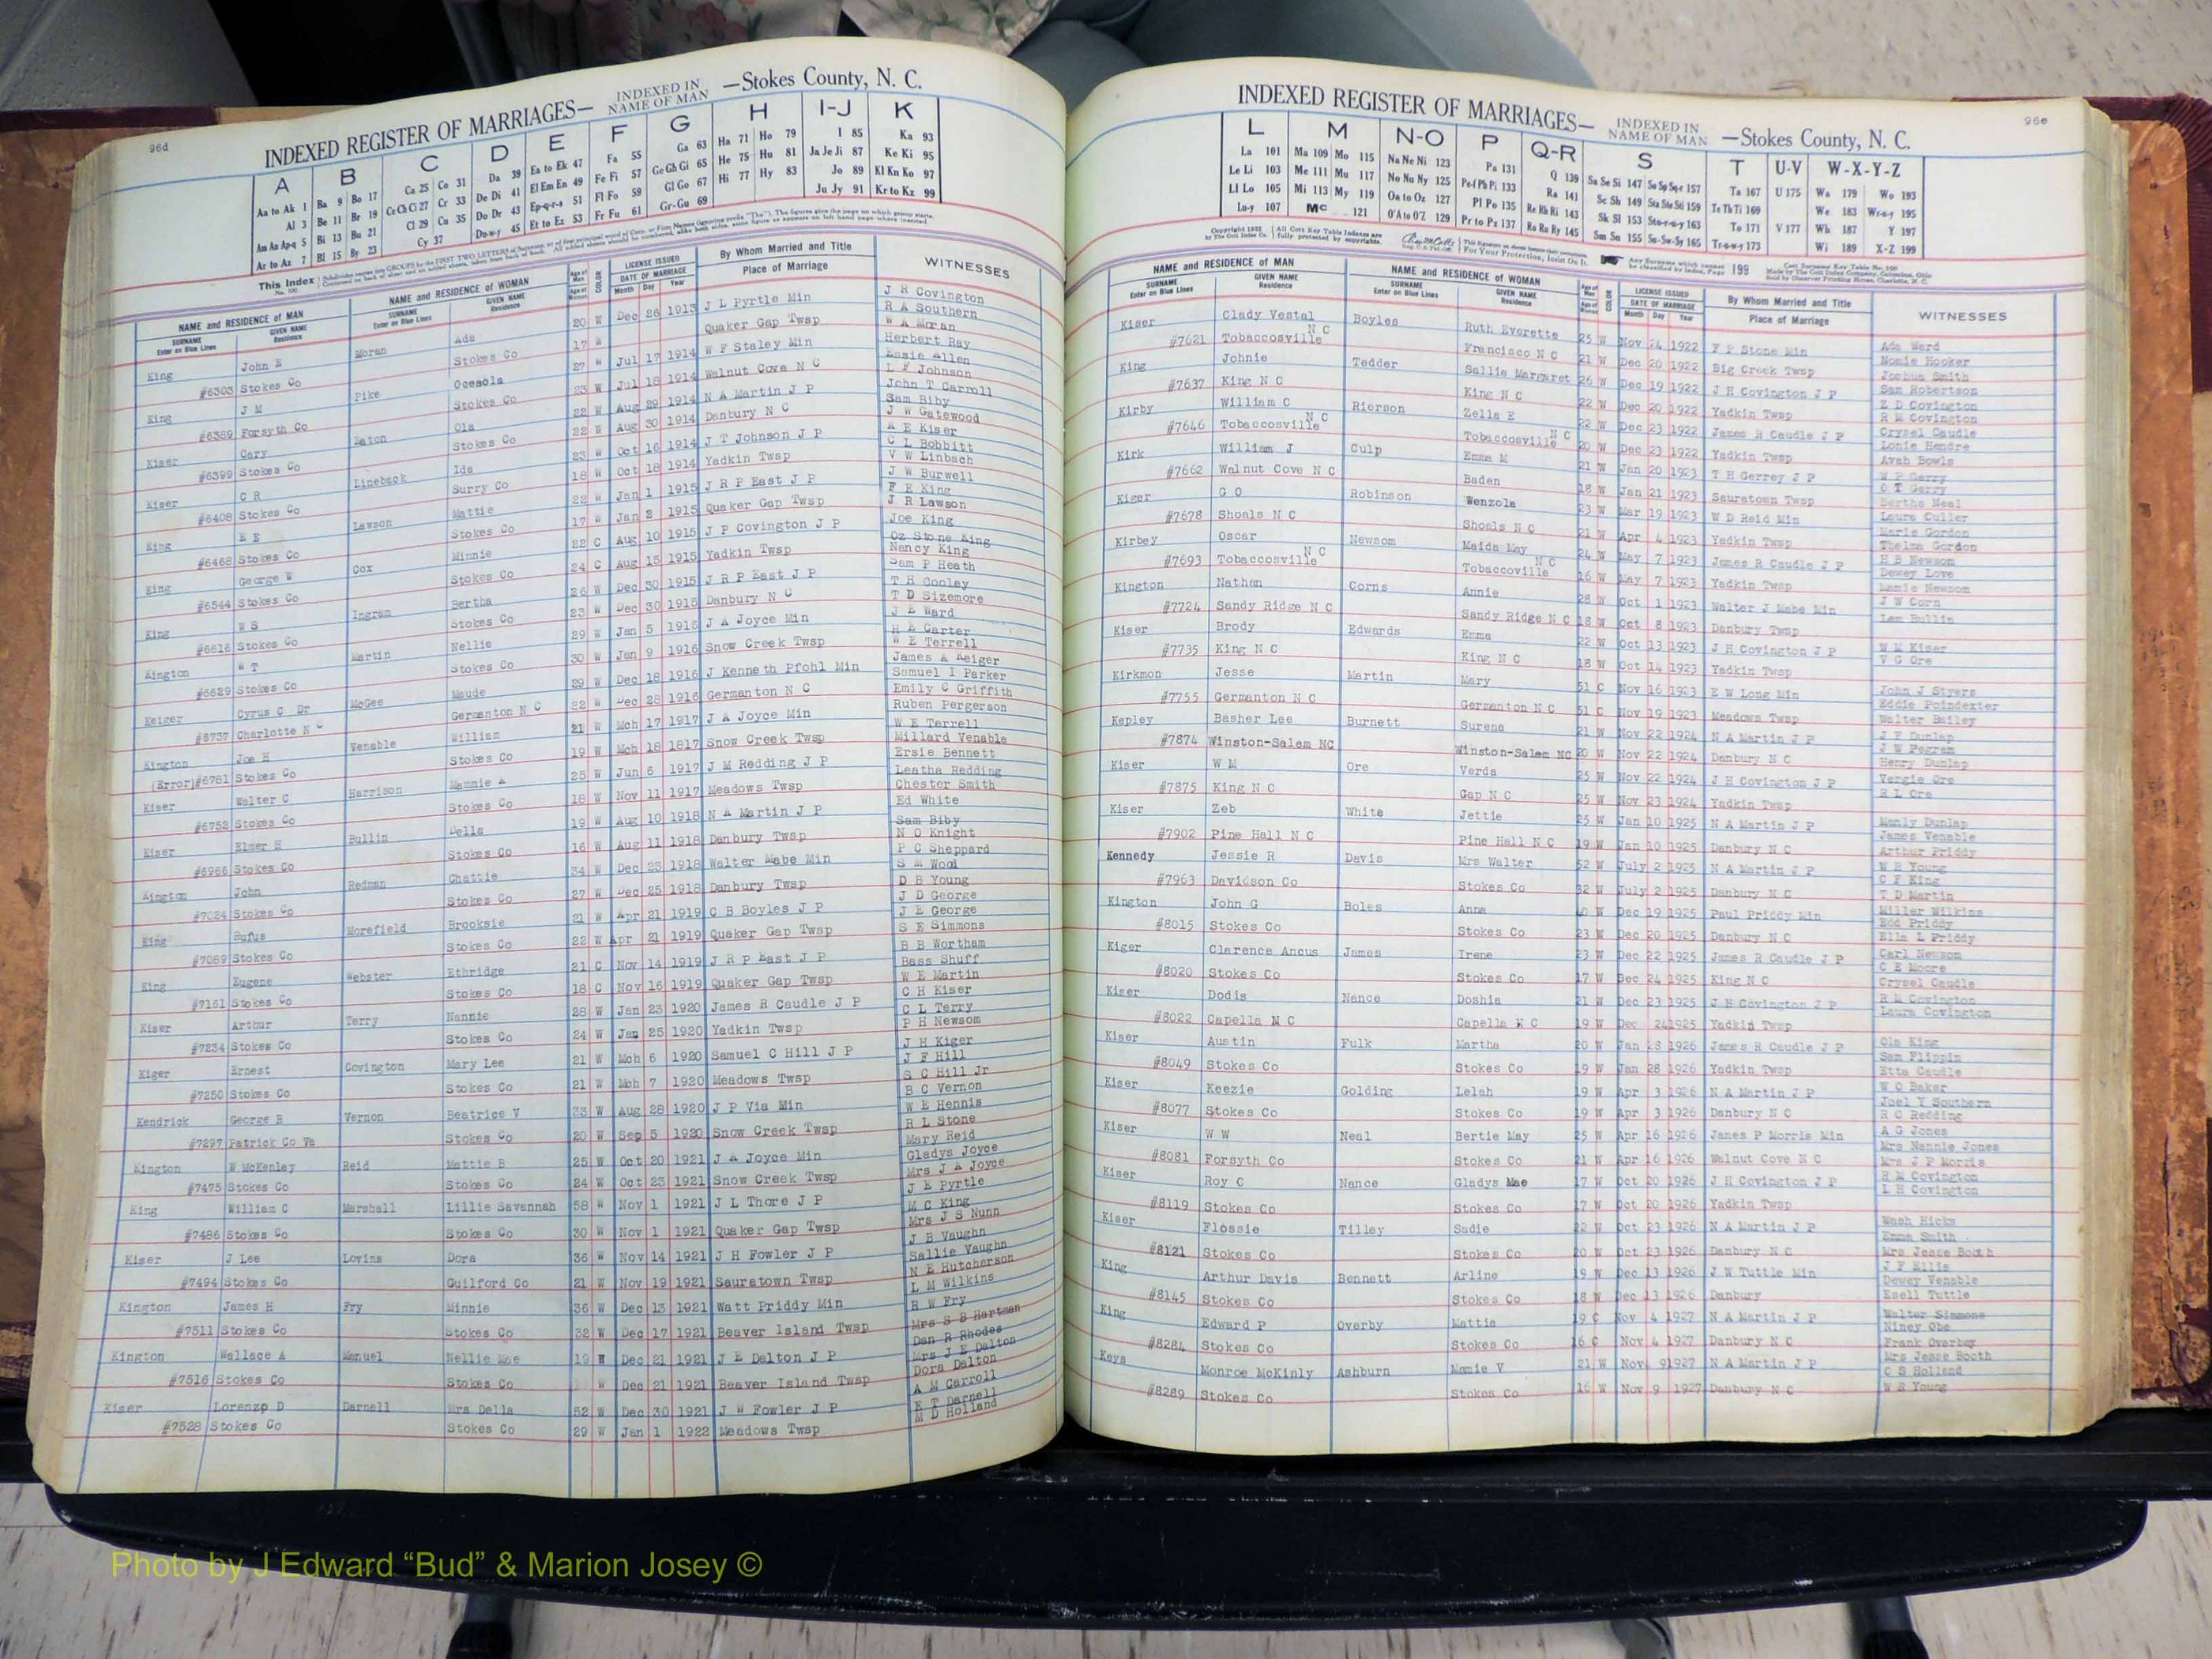 96d
INDEXED REGISTER OF MARRIAGES— INDEXED IN NAME OF MAN —Stokes County, N. C.
A B C D E F G H I-J K
Aa to Ak 1 Ba 9 Bo 17 Ca 25 Co 31 Da 39 Ea to Ek 47 Fa 55 Ga 63 Ha 71 Ho 79 I 85 Ka 93
Al 3 Be 11 Br 19 Ce Ch Ci 27 Cr 33 De Di 41 El Em En 49 Fe Fi 57 Ge Gh Gi 65 He 75 Hu 81 Ja Je Ji 87 Ke Ki 95
Am An Ap-q 5 Bi 13 Bu 21 Cl 29 Cu 35 Do Dr 43 Ep-q-r-s 51 Fl Fo 59 Gl Go 67 Hi 77 Hy 83 Jo 89 Kl Kn Ko 97
Ar to Az 7 Bl 15 By 23 Cy 37 Du-w-y 45 Et to Ez 53 Fr Fu 61 Gr-Gu 69 Ju Jy 91 Kr to Kz 99
NAME and RESIDENCE of MAN NAME and RESIDENCE of WOMAN LICENSE ISSUED By Whom Married and Title WITNESSES
SURNAME GIVEN NAME SURNAME GIVEN NAME DATE OF MARRIAGE Place of Marriage
Enter on Blue Lines Residence Enter on Blue Lines Residence Month Day Year
King John E Moran Ada 20 W Dec 26 1913 J L Pyrtle Min J R Covington
#6303 Stokes Co Stokes Co 17 W Quaker Gap Twsp R A Southern
W A Moran
King J M Pike Oceaola 27 W Jul 17 1914 W F Staley Min Herbert Ray
#6389 Forsyth Co Stokes Co 23 W Jul 18 1914 Walnut Cove N C Essie Allen
L F Johnson
Kiser Cary Eaton Ola 22 W Aug 29 1914 N A Martin J P John T Carroll
#6399 Stokes Co Stokes Co 22 W Aug 30 1914 Danbury N C Sam Biby
J W Gatewood
Kiser C R Lineback Ida 23 W Oct 16 1914 J T Johnson J P A E Kiser
#6408 Stokes Co Surry Co 18 W Oct 18 1914 Yadkin Twsp C L Bobbitt
V W Linbach
King E E Lawson Mattie 22 W Jan 1 1915 J R P East J P J W Burwell
#6468 Stokes Co Stokes Co 17 W Jan 2 1915 Quaker Gap Twsp F E King
J R Lawson
King George W Cox Minnie 22 C Aug 10 1915 J P Covington J P Joe King
#6544 Stokes Co Stokes Co 24 C Aug 15 1915 Yadkin Twsp Oz Stone King
Nancy King
King W S Ingram Bertha 26 W Dec 30 1915 J R P East J P Sam P Heath
#6616 Stokes Co Stokes Co 23 W Dec 30 1915 Danbury N C T H Cooley
T D Sizemore
Kington W T Martin Nellie 29 W Jan 5 1916 J A Joyce Min J E Ward
#6629 Stokes Co Stokes Co 30 W Jan 9 1916 Snow Creek Twsp H E Carter
W E Terrell
Keiger Cyrus C Dr McGee Maude 29 W Dec 18 1916 J Kenneth Pfohl Min James A Keiger
#6737 Charlotte N C Germanton N C 22 W Dec 28 1916 Germanton N C Samuel I Parker
Emily C Griffith
Kington Joe H Venable William 21 W Mch 17 1917 J A Joyce Min Ruben Pergerson
(Error)#6781 Stokes Co Stokes Co 19 W Mch 18 1817 Snow Creek Twsp W E Terrell
Millard Venable
Kiser Walter C Harrison Mammie A 25 W Jun 6 1917 J M Redding J P Ersie Bennett
#6752 Stokes Co Stokes Co 18 W Nov 11 1917 Meadows Twsp Leatha Redding
Chester Smith
Kiser Elmer H Bullin Della 19 W Aug 10 1918 N A Martin J P Ed White
#6966 Stokes Co Stokes Co 16 W Aug 11 1918 Danbury Twsp Sam Biby
N O Knight
Kington John Redman Chattie 34 W Dec 23 1918 Walter Mabe Min P C Sheppard
#7024 Stokes Co Stokes Co 27 W Dec 25 1918 Danbury Twsp S M Wood
D B Young
King Rufus Morefield Brooksie 21 W Apr 21 1919 C B Boyles J P J D George
#7089 Stokes Co Stokes Co 22 W Apr 21 1919 Quaker Gap Twsp J E George
S E Simmons
King Eugene Webster Ethridge 21 C Nov 14 1919 J R P East J P B B Wortham
#7161 Stokes Co Stokes Co 18 C Nov 16 1919 Quaker Gap Twsp Bass Shuff
W E Martin
Kiser Arthur Terry Nannie 28 W Jan 23 1920 James R Caudle J P C H Kiser
#7234 Stokes Co Stokes Co 24 W Jan 25 1920 Yadkin Twsp C L Terry
P H Newsom
Kiger Ernest Covington Mary Lee 21 W Mch 6 1920 Samuel C Hill J P J H Kiger
#7250 Stokes Co Stokes Co 21 W Mch 7 1920 Meadows Twsp J F Hill
S C Hill Jr
Kendrick George R Vernon Beatrice V 33 W Aug 28 1920 J P Via Min B C Vernon
#7297 Patrick Co Va Stokes Co 20 W Sep 5 1920 Snow Creek Twsp W E Hennis
R L Stone
Kington W McKenley Reid Mattie B 25 W Oct 20 1921 J A Joyce Min Mary Reid
#7475 Stokes Co Stokes Co 24 W Oct 23 1921 Snow Creek Twsp Gladys Joyce
Mrs J A Joyce
King William C Marshall Lillie Savannah 58 W Nov 1 1921 J L Thore J P J E Pyrtle
#7486 Stokes Co Stokes Co 30 W Nov 1 1921 Quaker Gap Twsp M C King
Mrs J S Nunn
Kiser J Lee Lovins Dora 36 W Nov 14 1921 J H Fowler J P J B Vaughn
#7494 Stokes Co Guilford Co 21 W Nov 19 1921 Sauratown Twsp Sallie Vaughn
N E Hutcherson
Kington James H Fry Minnie 36 W Dec 13 1921 Watt Priddy Min L M Wilkins
#7511 Stokes Co Stokes Co 32 W Dec 17 1921 Beaver Island Twsp R W Fry
Mrs S B Hartman
Kington Wallace A Manuel Nellie Mae 19 W Dec 21 1921 J E Dalton J P Dan R Rhodes
#7516 Stokes Co Stokes Co W Dec 21 1921 Beaver Island Twsp Mrs J E Dalton
Dora Dalton
Kiser Lorenzo D Darnell Mrs Della 52 W Dec 30 1921 J W Fowler J P A M Carroll
#7528 Stokes Co Stokes Co 29 W Jan 1 1922 Meadows Twsp E T Darnell
M D Holland
96e
INDEXED REGISTER OF MARRIAGES— INDEXED IN NAME OF MAN —Stokes County, N. C.
L M N-O P Q-R S T U-V W-X-Y-Z
La 101 Ma 109 Mo 115 Na Ne Ni 123 Pa 131 Q 139 Sa Se Si 147 So Sp Sq-r 157 Ta 167 U 175 Wa 179 Wo 193
Le Li 103 Me 111 Mu 117 No Nu Ny 125 Pe-f Ph Pi 133 Ra 141 Sc Sh 149 Sta Ste Sti 159 Te Th Ti 169 We 183 Wr-u-y 195
Ll Lo 105 Mi 113 My 119 Oa to Oz 127 Pl Po 135 Re Rh Ri 143 Sk Sl 153 Sto-r-u-y 163 To 171 V 177 Wh 187 Y 197
Lu-y 107 Mc 121 O'A to O'Z 129 Pr to Pz 137 Ro Ru Ry 145 Sm Sn 155 Su-Sw-Sy 165 Tr-u-w-y 173 Wi 189 X-Z 199
NAME and RESIDENCE OF MAN NAME and RESIDENCE OF WOMAN LICENSE ISSUED By Whom Married and Title WITNESSES
SURNAME GIVEN NAME SURNAME GIVEN NAME DATE OF MARRIAGE Place of Marriage
Enter on Blue Lines Residence Enter on Blue Lines Residence Month Day Year
Kiser Clady Vestal Boyles Ruth Everette 25 W Nov 24 1922 F P Stone Min Ada Ward
#7621 Tobaccosville N C Francisco N C 21 W Dec 20 1922 Big Creek Twsp Nomie Hooker
Joshua Smith
King Johnie Tedder Sallie Margaret 26 W Dec 19 1922 J H Covington J P Sam Robertson
#7637 King N C King N C 22 W Dec 20 1922 Yadkin Twsp Z D Covington
R M Covington
Kirby William C Rierson Zella E 22 W Dec 23 1922 James R Caudle J P Crysel Caudle
#7646 Tobaccosville N C Tobaccosville N C 20 W Dec 23 1922 Yadkin Twsp Lonie Hendre
Avah Bowls
Kirk William J Culp Emma M 21 W Jan 20 1923 T H Gerrey J P W P Gerry
#7662 Walnut Cove N C Baden 18 W Jan 21 1923 Sauratown Twsp O T Gerry
Bertha Neal
Kiger G O Robinson Wenzola 23 W Mar 19 1923 W D Reid Min Laura Culler
#7678 Shoals N C Shoals N C 21 W Apr 4 1923 Yadkin Twsp Marie Gordon
Thelma Gordon
Kirbey Oscar Newsom Maida May 24 W May 7 1923 James R Caudle J P H B Newsom
#7693 Tobaccosville N C Tobaccoville N C 16 W May 7 1923 Yadkin Twsp Dewey Love
Mamie Newsom
Kington Nathan Corns Annie 28 W Oct 1 1923 Walter J Mabe Min J W Corn
#7724 Sandy Ridge N C Sandy Ridge N C 18 W Oct 8 1923 Danbury Twsp Lee Bullin
Kiser Brody Edwards Emma 22 W Oct 13 1923 J H Covington J P W M Kiser
#7735 King N C King N C 18 W Oct 14 1923 Yadkin Twsp V G Ore
Kirkmon Jesse Martin Mary 51 C Nov 16 1923 E W Long Min John J Styers
#7755 Germanton N C Germanton N C 51 C Nov 19 1923 Meadows Twsp Eddie Poindexter
Walter Bailey
Kepley Basher Lee Burnett Surena 21 W Nov 22 1924 N A Martin J P J F Dunlap
#7874 Winston-Salem NC Winston-Salem NC 20 W Nov 22 1924 Danbury N C J W Pegram
Henry Dunlap
Kiser W M Ore Verda 25 W Nov 22 1924 J H Covington J P Vergie Ore
#7875 King N C Gap N C 25 W Nov 23 1924 Yadkin Twsp R L Ore
Kiser Zeb White Jettie 25 W Jan 10 1925 N A Martin J P Manly Dunlap
#7902 Pine Hall N C Pine Hall N C 19 W Jan 10 1925 Danbury N C James Venable
Arthur Priddy
Kennedy Jessie R Davis Mrs Walter 52 W July 2 1925 N A Martin J P W R Young
#7963 Davidson Co Stokes Co 32 W July 2 1925 Danbury N C C F King
T D Martin
Kington John G Boles Anna W Dec 19 1925 Paul Priddy Min Miller Wilkins
#8015 Stokes Co Stokes Co 23 W Dec 20 1925 Danbury N C Edd Priddy
Ella L Priddy
Kiger Clarence Ancus James Irene 23 W Dec 22 1925 James R Caudle J P Carl Newsom
#8020 Stokes Co Stokes Co 17 W Dec 24 1925 King N C C E Moore
Crysel Caudle
Kiser Dodis Nance Doshia 21 W Dec 23 1925 J H Covington J P R M Covington
#8022 Capella N C Capella N C 19 W Dec 24 1925 Yadkin Twsp Laura Covington
Kiser Austin Fulk Martha 20 W Jan 28 1926 James R Caudle J P Ola King
#8049 Stokes Co Stokes Co 19 W Jan 28 1926 Yadkin Twsp Sam Flippin
Etta Caudle
Kiser Keezie Golding Lelah 19 W Apr 3 1926 N A Martin J P W O Baker
#8077 Stokes Co Stokes Co 19 W Apr 3 1926 Danbury N C Joel Y Southern
R C Redding
Kiser W W Neal Bertie May 25 W Apr 16 1926 James P Morris Min A G Jones
#8081 Forsyth Co Stokes Co 21 W Apr 16 1926 Walnut Cove N C Mrs Nannie Jones
Mrs J P Morris
Kiser Roy C Nance Gladys Mae 17 W Oct 20 1926 J H Covington J P R M Covington
#8119 Stokes Co Stokes Co 17 W Oct 20 1926 Yadkin Twsp L H Covington
Kiser Flossie Tilley Sadie 22 W Oct 23 1926 N A Martin J P Wash Hicks
#8121 Stokes Co Stokes Co 20 W Oct 23 1926 Danbury N C Emma Smith
Mrs Jesse Booth
King Arthur Davis Bennett Arline 19 W Dec 13 1926 J W Tuttle Min J F Ellis
#8145 Stokes Co Stokes Co 18 W Dec 13 1926 Danbury Dewey Venable
Esell Tuttle
King Edward P Overby Mattie 19 C Nov 4 1927 N A Martin J P Walter Simmons
#8284 Stokes Co Stokes Co 16 C Nov 4 1927 Danbury N C Niney Obe
Frank Overbey
Keys Monroe McKinly Ashburn Mamie V 21 W Nov 9 1927 N A Martin J P Mrs Jesse Booth
#8289 Stokes Co Stokes Co 16 W Nov 9 1927 Danbury N C C S Holland
W R Young
Photo by J Edward “Bud” & Marion Josey ©